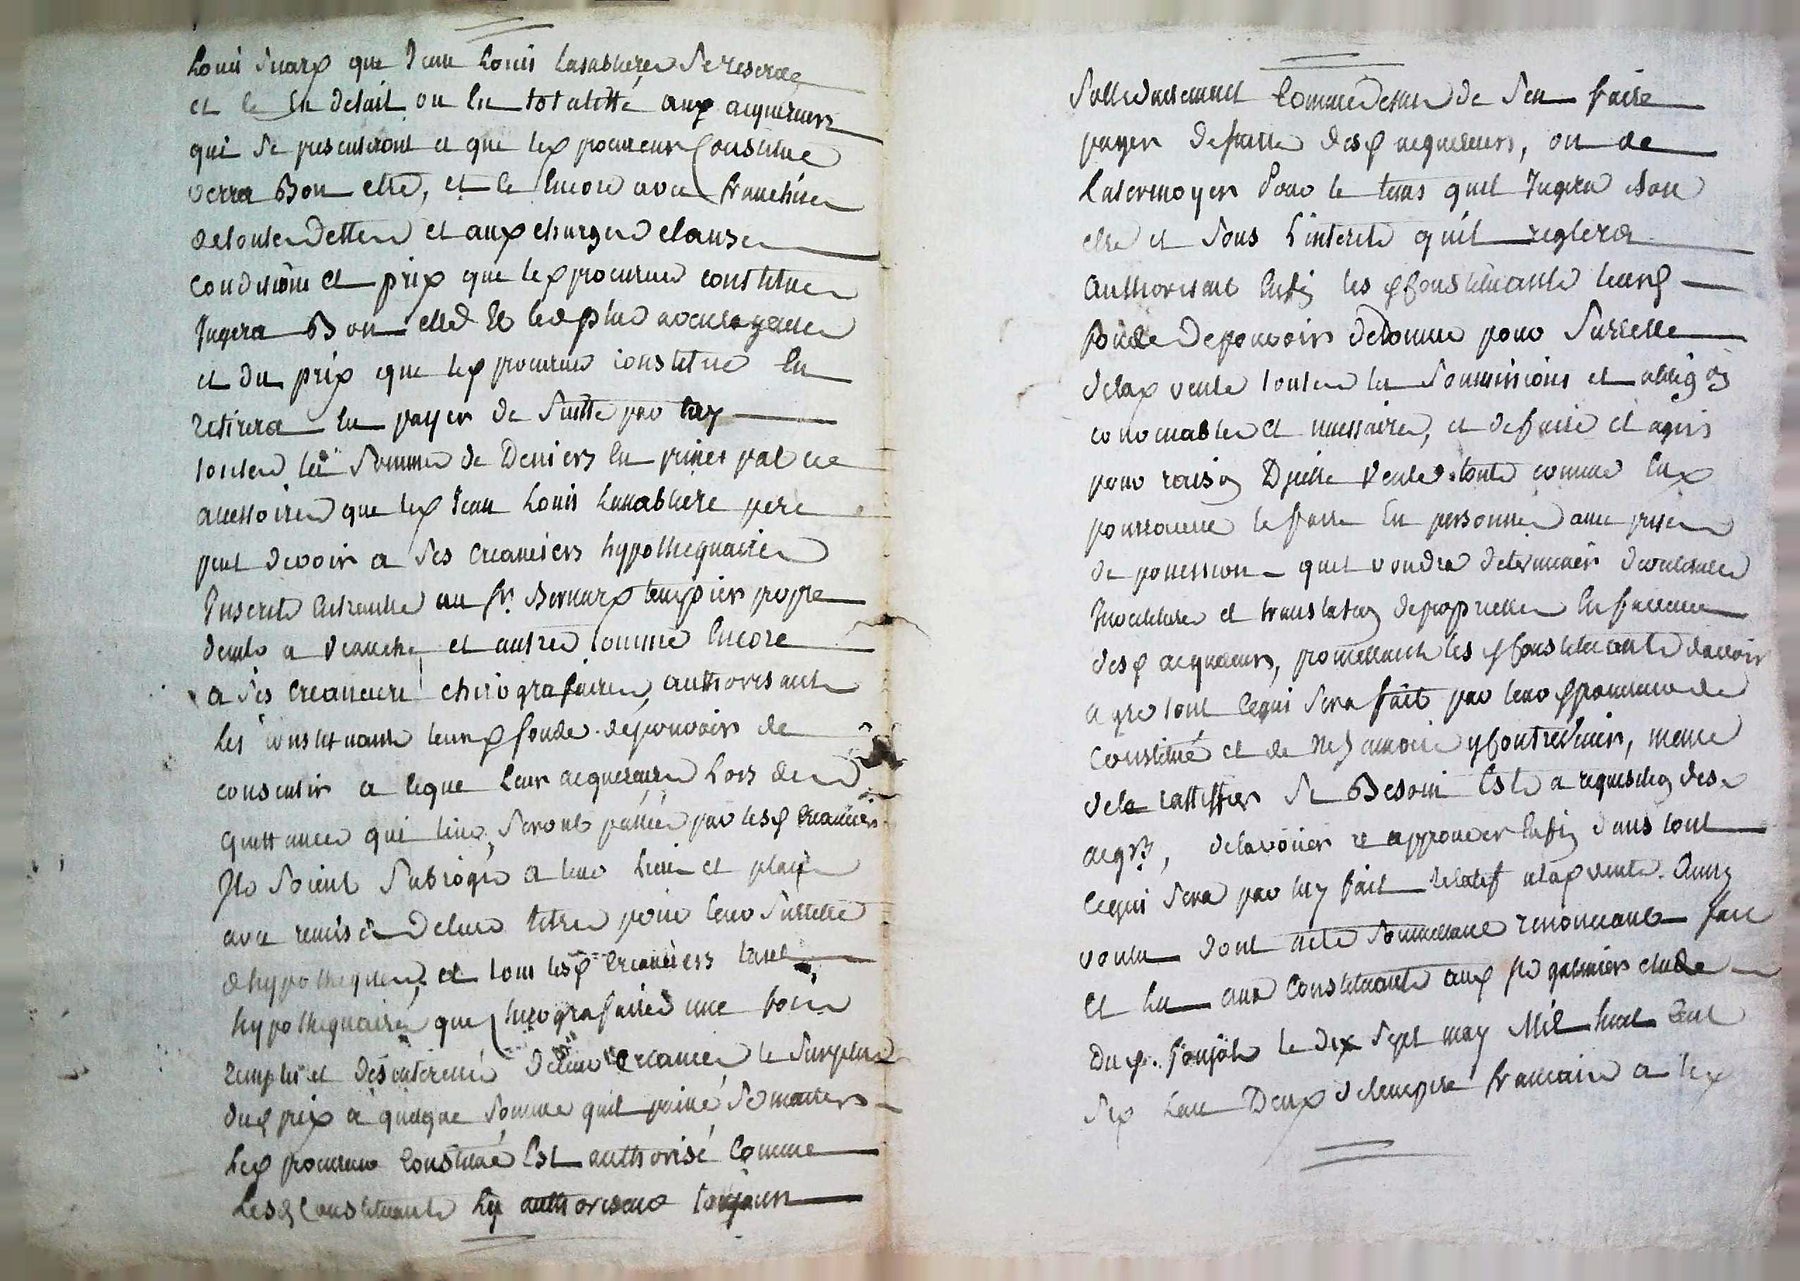 Louis que Jean Louis Lasabliere se reserve
et ce en detail ou en totalitté aux acquereurs
qui se presenteront et que le procureur constitué
verra Bon estre, et ce encore avec franchise
de toutes dettes et aux charges clauses
conditions et prix que le procureur constitué
Jugera Bon estre Et le plus avantageuse
et du prix que le procureur constitué En
retirera En payer de suitte par luy
toutes les sommes de Deniers En principal et
accessoires que le Jean Louis Lasabliere pere
peut devoir a ses creanciers hypothequaires
Inscrits Entreautre au Sr. Bernard propre
et autres comme Encore
a ses creanciers chirografaires, authorisant
les constituants leur fondé de pouvoir de
consentir a ceque leur acquereurs Lors des
quittances qui leur seront passées par les creanciers
Ils soient subrogés a leur lieu et place
avec remise de leur titres pour leur suretté
d'hypotheques, et tous les creanciers tant
hypothequaires que chirografaires une fois
remplis et désinteressés de leur creances le surplus
du prix à quelque somme quil puisse se monter
Le procureur constitué Est authorisé comme
Les constituants Ly authorisent toujours
solidairement comme dessus de s'en faire
payer de suitte des acquereurs, ou de
Lattermoyer pour le tems quil Jugera bon
estre et sous L'interets qu'il reglera
authorisant Enfin les constituants leur
fondé de pouvoir de donner pour surette
de la vente toutes les soumissions et
convenables et necessaires, et de faire et agir
pour raison D'icelle vente tout comme Eux
pourroient le faire En personnes avec prise
de possession quil voudra determiner
mobiliaire et translation de proprietté En faveur
des acquereurs, promettant les constituants d'avoir
agre tout cequi sera fait par leur procureur
constitué et de ne jamais y contrevenir, meme
de le rattiffier si Besoin Est a requisition des
acqrs, delavoüer et approuver Enfin dans tout
cequi sera par luy fait relatif a la vente. Ainsy
voulu dont acte soumettant renonceant fait
Et lu aux constituants aux
Du le dix sept may Mil huit Cent
six Lan Deux de lempire francais a le